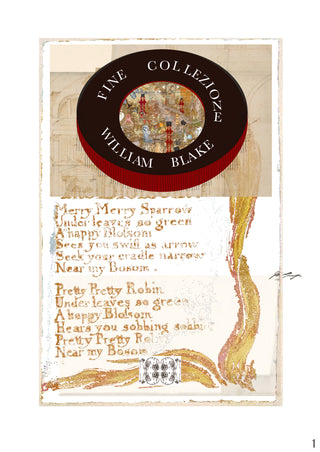 FINE COLLEZIONE
WILLIAM BLAKE
Merry Merry Sparrow
Under leaves so green
A happy Blossom
Sees you swift as arrow
Seek your cradle narrow
Near my Bosom.
Pretty Pretty Robin
Under leaves so green
A happy Blossom
Hears you sobbing sobbing
Pretty Pretty Robin
Near my Bosom
1